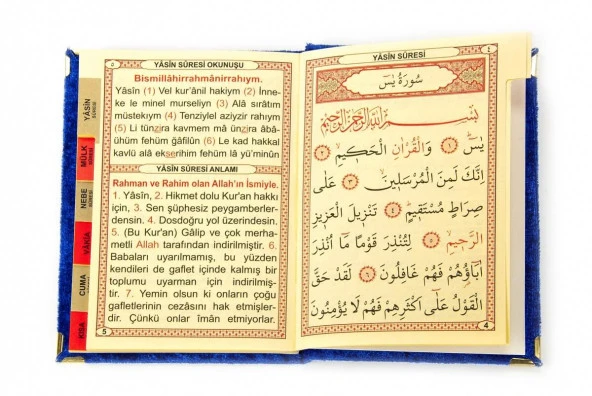 ٥
YÂSİN SÛRESİ OKUNUŞU
Bismillâhirrahmânirrahıym.
Yâsîn (1) Vel kur'ânil hakiym (2) İnne-
ke le minel murseliyn (3) Alâ sırâtım
müstekıym (4) Tenziylel aziyzir rahıym
(5) Li tünzira kavmem mâ ünzira âbâ-
ühüm fehüm ğâfilûn (6) Le kad hakkal
kavlü alâ ekserihim fehüm lâ yü'minûn
YÂSİN SÛRESİ ANLAMI
Rahman ve Rahim olan Allah'ın İsmiyle.
1. Yâsîn, 2. Hikmet dolu Kur'an hakkı
için, 3. Sen şüphesiz peygamberler-
densin. 4. Dosdoğru yol üzerindesin.
5. (Bu Kur'an) Gâlip ve çok merha-
metli Allah tarafından indirilmiştir. 6.
Babaları uyarılmamış, bu yüzden
kendileri de gaflet içinde kalmış bir
toplumu uyarman için indirilmiş-
tir. 7. Yemin olsun ki onların çoğu
gafletlerinin cezasını hak etmişler-
dir. Çünkü onlar îmân etmiyorlar.
5
YÂSİN
SÛRESİ
MÜLK
SÛRESİ
NEBE
SÛRESİ
VÂKIA
CUMA
KISA
YÂSİN SÛRESİ
٤
سُورَةُ يٰسٓ
بِسْمِ اللّٰهِ الرَّحْمٰنِ الرَّحِيمِ
يٰسٓ ﴿١﴾ وَالْقُرْاٰنِ الْحَكِيمِ ﴿٢﴾
اِنَّكَ لَمِنَ الْمُرْسَلِينَ ﴿٣﴾ عَلٰى
صِرَاطٍ مُسْتَقِيمٍ ﴿٤﴾ تَنْزِيلَ الْعَزِيزِ
الرَّحِيمِ ﴿٥﴾ لِتُنْذِرَ قَوْمًا مَٓا اُنْذِرَ
اٰبَٓاؤُهُمْ فَهُمْ غَافِلُونَ ﴿٦﴾ لَقَدْ حَقَّ
الْقَوْلُ عَلٰٓى اَكْثَرِهِمْ فَهُمْ لَا يُؤْمِنُونَ
4